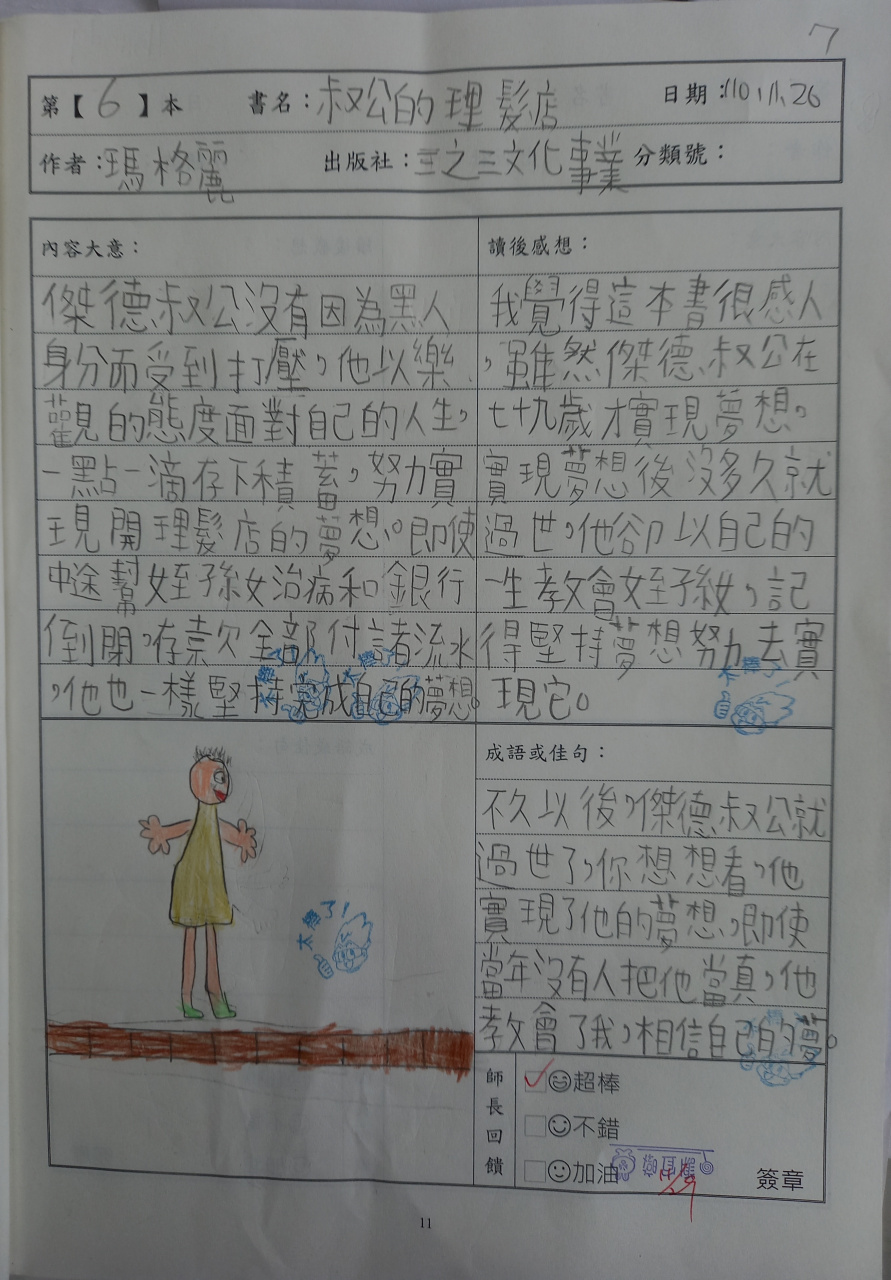 7
第【6】本 書名：叔公的理髮店 日期：110.11.26
作者：瑪格麗 出版社：三之三文化事業 分類號：
內容大意：
傑德叔公沒有因為黑人
身分而受到打壓，他以樂
觀的態度面對自己的人生，
一點一滴存下積蓄，努力實
現開理髮店的夢想。即使
中途幫姪子孫女治病和銀行
倒閉，存款全部付諸流水
，他也一樣堅持完成自己的夢想。
讀後感想：
我覺得這本書很感人
，雖然傑德叔公在
七十九歲才實現夢想，
實現夢想後沒多久就
過世，他卻以自己的
一生教會姪子孫女，記
得堅持夢想努力去實
現它。
太棒了！
成語或佳句：
不久以後，傑德叔公就
過世了，你想想看，他
實現了他的夢想，即使
當年沒有人把他當真，他
教會了我，相信自己的夢。
師長回饋
超棒
不錯
加油
簽章
11